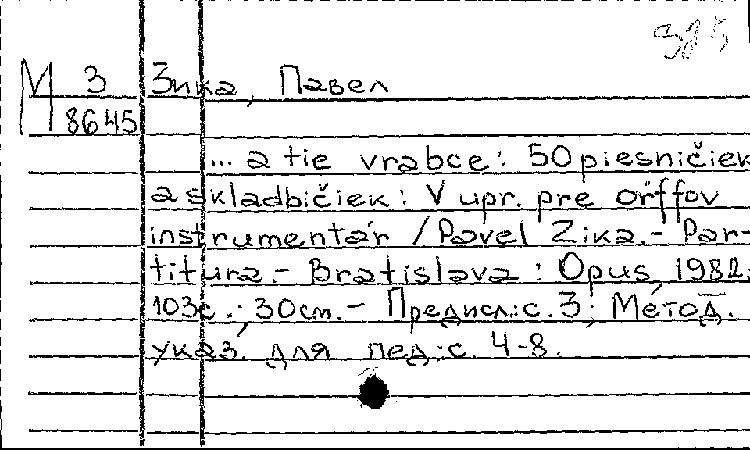 М З Зика, Павел
8645
... a tie vrabce: 50 piesničiek
a skladbičiek: V upr. pre orffov
instrumentár / Pavel Zika. - Par-
titura. - Bratislava : Opus, 1982.
103с.; 30см. - Предисл.: с. 3; Метод.
указ. для пед.: с. 4-8.